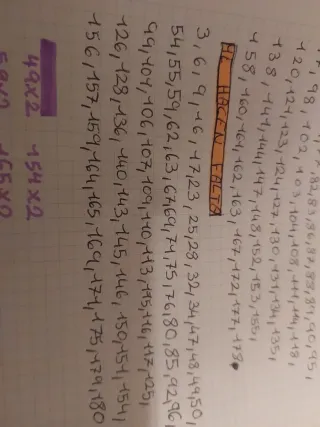 82,83,86,87,88,89,90,95,
98,102,103,104,108,111,114,118,
120,121,123,124,127,130,131,134,135,
138,141,144,147,148,152,153,155,
158,160,161,162,163,167,172,177,178.
ME HACEN FALTA
3,6,9,16,17,23,25,28,32,34,47,48,49,50,
54,55,59,62,63,67,69,74,75,76,80,85,92,96,
99,101,106,107,109,110,113,115,116,117,125,
126,128,136,140,143,145,146,150,151,154,
156,157,159,164,165,169,174,175,179,180
49x2 154x2
59x2 165x2